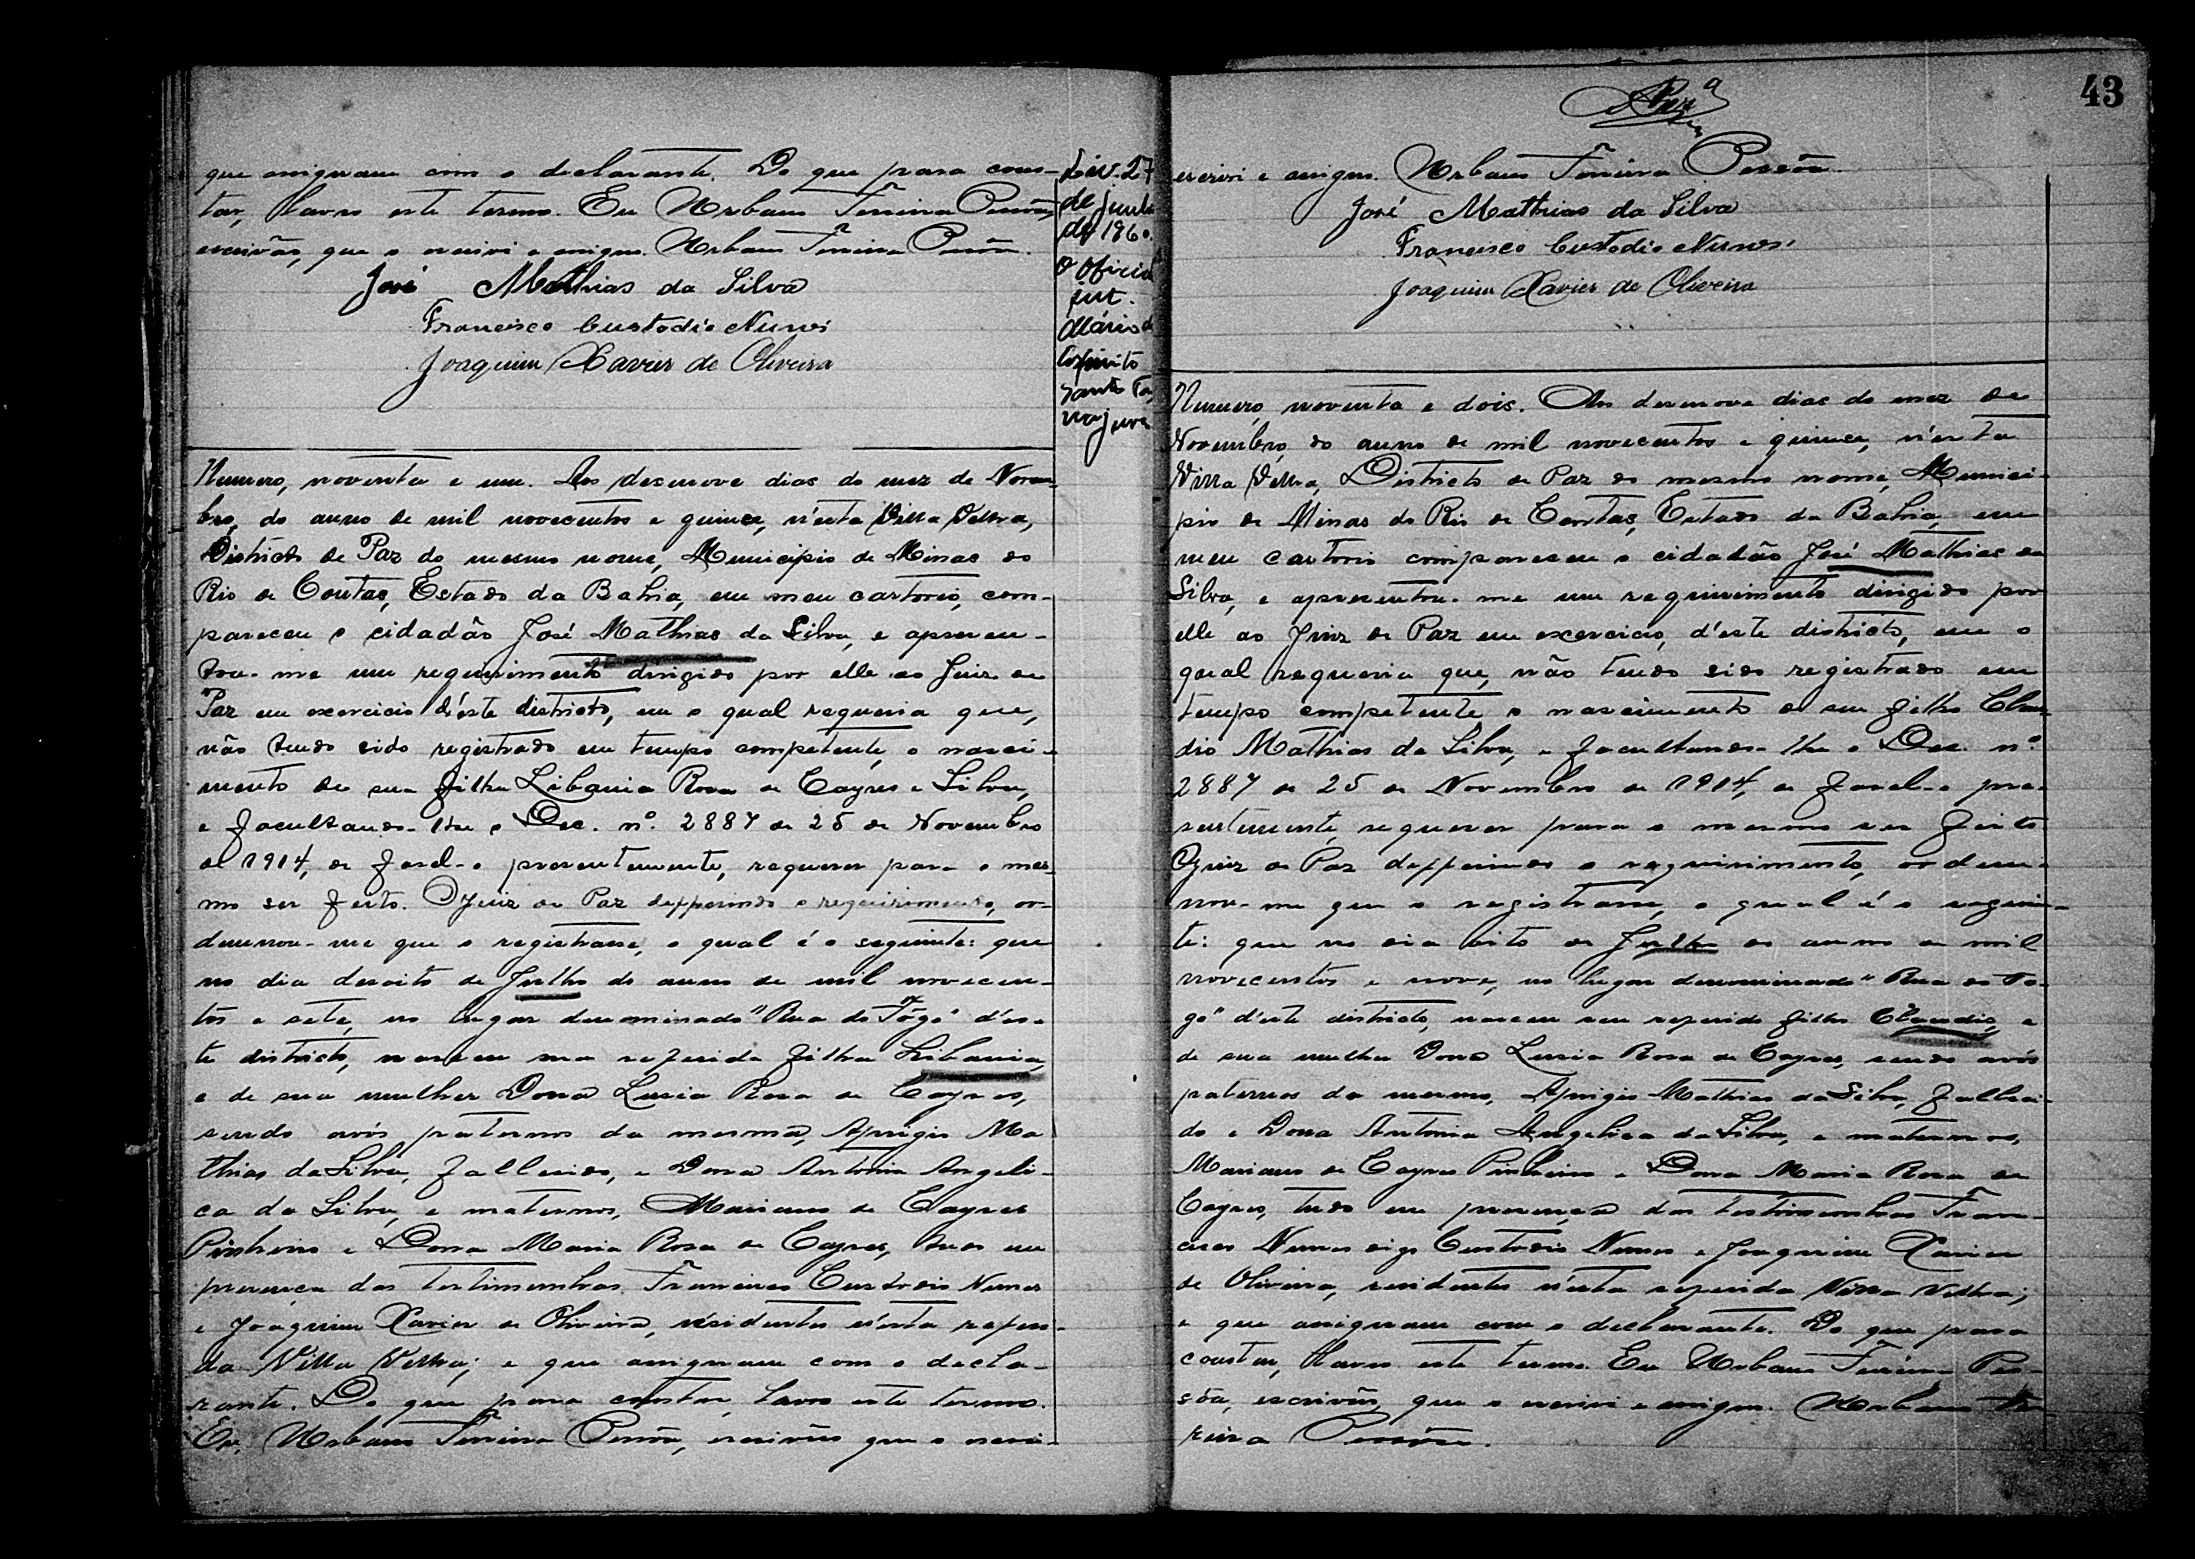 que assignam com o declarante. Do que para cons-
tar, lavro este termo. Eu Urbano Ferreira Pessôa,
escrivão, que o escrivi e assigno. Urbano Ferreira Pessôa.
José Mathias da Silva
Francisco Custodio Nunes
Joaquim Xavier de Oliveira
Numero, noventa e um. Aos desenove dias do mez de Novem-
bro, do anno de mil novecentos e quinze, n'esta Villa Velha,
Districto de Paz do mesmo nome, Municipio de Minas do
Rio de Contas, Estado da Bahia, em meu cartorio, com-
pareceu o cidadão José Mathias da Silva, e apresen-
tou-me um requerimento dirigido por elle ao Juiz de
Paz em exercicio d'este districto, em o qual requeria que,
não tendo sido registrado em tempo competente, o nasci-
mento de sua filha Libania Rosa de Cayres e Silva,
e facultando-lhe o Dec. nº. 2887 de 25 de Novembro
de 1914, de fasel-o presentemente, requerer para o mes-
mo ser feito. O Juiz de Paz defferindo o requirimento, or-
denou-me que o registrasse, o qual é o seguinte: que
no dia desoito de Julho do anno de mil novecen-
tos e sete, no lugar denominado "Rua do Fôgo" d'es-
te districto, nasceu sua referida filha Libania,
e de sua mulher Dona Luzia Rosa de Cayres,
sendo avós paternos da mesma, Aprigio Ma
thias da Silva, fallecido, e Dona Antonia Angeli-
ca da Silva, e maternos, Mariano de Cayres
Pinheiro e Dona Maria Rosa de Cayres, tudo em
presença das testimunhas Francisco Custodio Nunes
e Joaquim Xavier de Oliveira, residentes n'esta referi-
da Villa Velha; e que assignam com o decla-
rante. Do que para constar, lavro este termo.
Eu, Urbano Ferreira Pessôa, escrivão que o escri-
Liv. 27
de junho
de 1960.
O Oficial
int.
Mário do
Espirito
Santo Ta
najura
43
escrivi e assigno. Urbano Ferreira Pessôa.
José Mathias da Silva
Francisco Custodio Nunes
Joaquim Xavier de Oliveira
Numero, noventa e dois. Aos desenove dias do mez de
Novembro, do anno de mil novecentos e quinze, n'esta
Villa Velha, Districto de Paz do mesmo nome, Munici-
pio de Minas do Rio de Contas, Estado da Bahia, em
meu cartorio compareceu o cidadão José Mathias da
Silva, e apresentou-me um requirimento dirigido por
elle ao Juiz de Paz em exercicio, d'este districto, em o
qual requeria que, não tendo sido registrado em
tempo competente o nascimento de seu filho Clau-
dio Mathias da Silva, e facultando-lhe o Dec. nº
2887 de 25 de Novembro de 1914, de fasel-o pre-
sentemente, requerer para o mesmo ser feito
O Juiz de Paz defferindo o requirimento, orde-
nou-me que o registrasse, o qual é o seguin-
te: que no dia oito de Julho do anno de mil
novecentos e nove, no lugar denominado "Rua do Fo-
go" d'este districto, nasceu seu referido filho Claudio, e
de sua mulher Dona Luzia Rosa de Cayres, sendo avós
paternos do mesmo, Aprigio Mathias da Silva, falleci-
do e Dona Antonia Angelica da Silva, e maternos,
Mariano de Cayres Pinheiro e Dona Maria Rosa de
Cayres, tudo em presença das testimunhas Fran-
cisco Nunes digo Custodio Nunes e Joaquim Xavier
de Oliveira, residentes n'esta referida Villa Velha;
e que assignam com o declarante. Do que para
constar, lavro este termo. Eu Urbano Ferreira Pes-
sôa, escrivão, que o escrivi e assigno. Urbano Fer-
reira Pessôa.